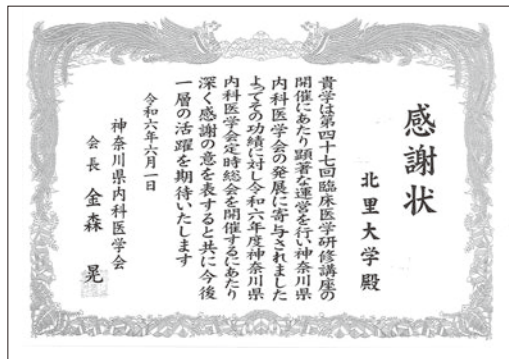 感謝状
北里大学殿
貴学は第四十七回臨床医学研修講座の
開催にあたり顕著な運営を行い神奈川県
内科医学会の発展に寄与されました
よってその功績に対し令和六年度神奈川県
内科医学会定時総会を開催するにあたり
深く感謝の意を表すると共に今後
一層の活躍を期待いたします
令和六年六月一日
神奈川県内科医学会
会長 金森 晃